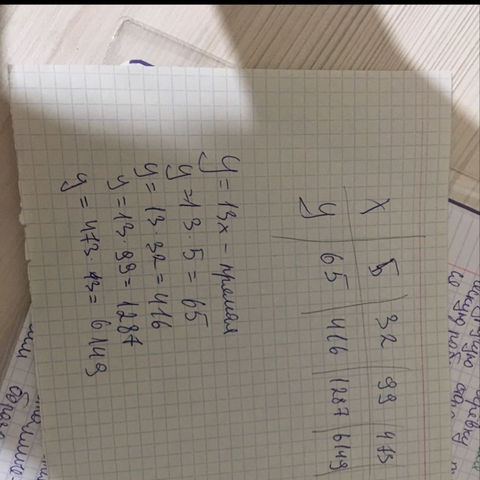 x 5 32 99 473
y 65 416 1287 6149
y = 13x – прямая
y = 13 · 5 = 65
y = 13 · 32 = 416
y = 13 · 99 = 1287
y = 473 · 13 = 6149